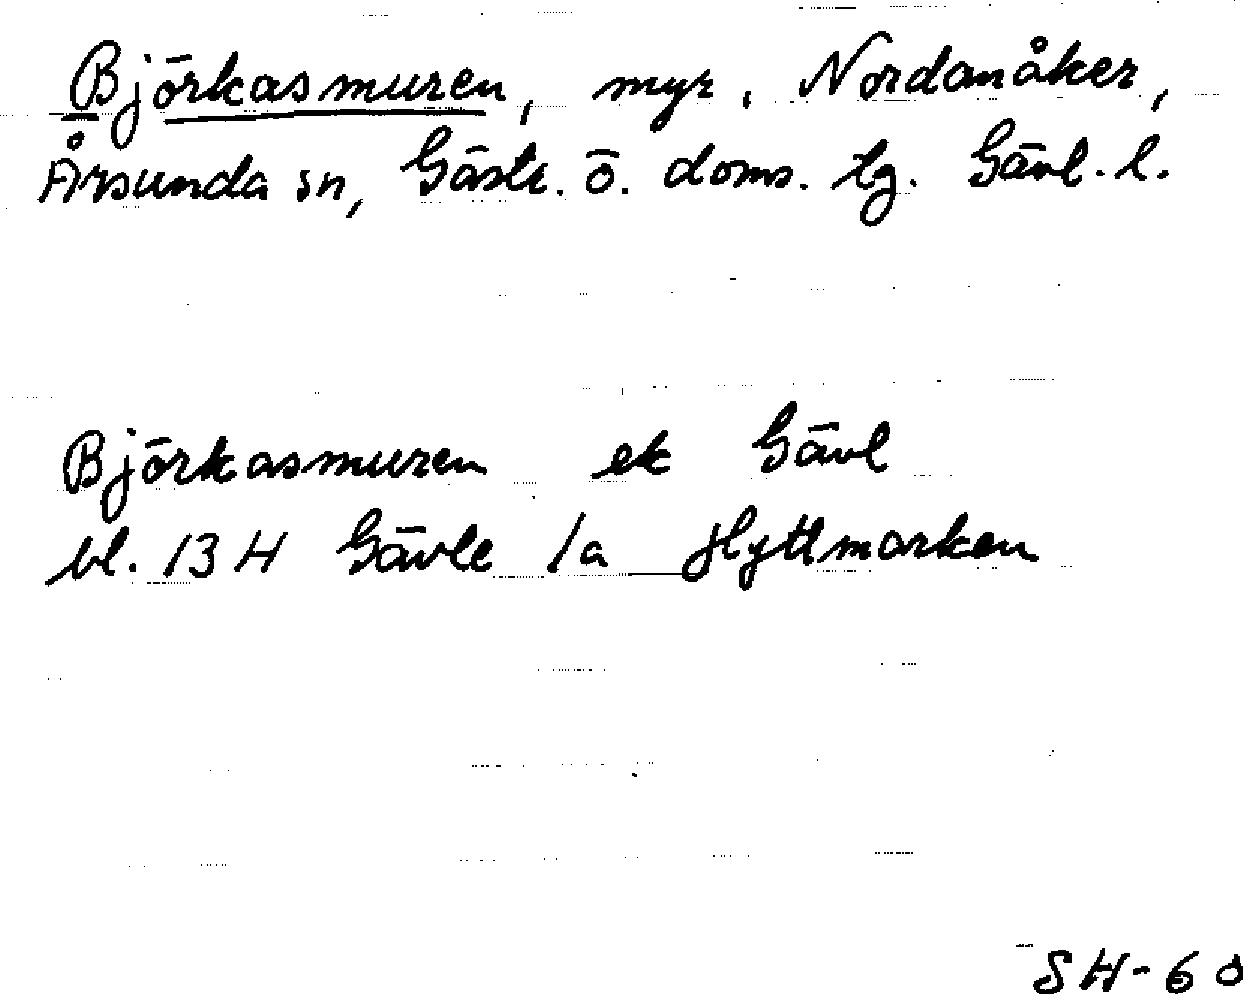 Björkasmuren, myr, Nordanåker,
Årsunda sn, Gästr. ö. doms. tg. Gävl. l.
Björkasmuren ek Gävl
bl. 13 H Gävle 1a Hyttmarken
SH-60